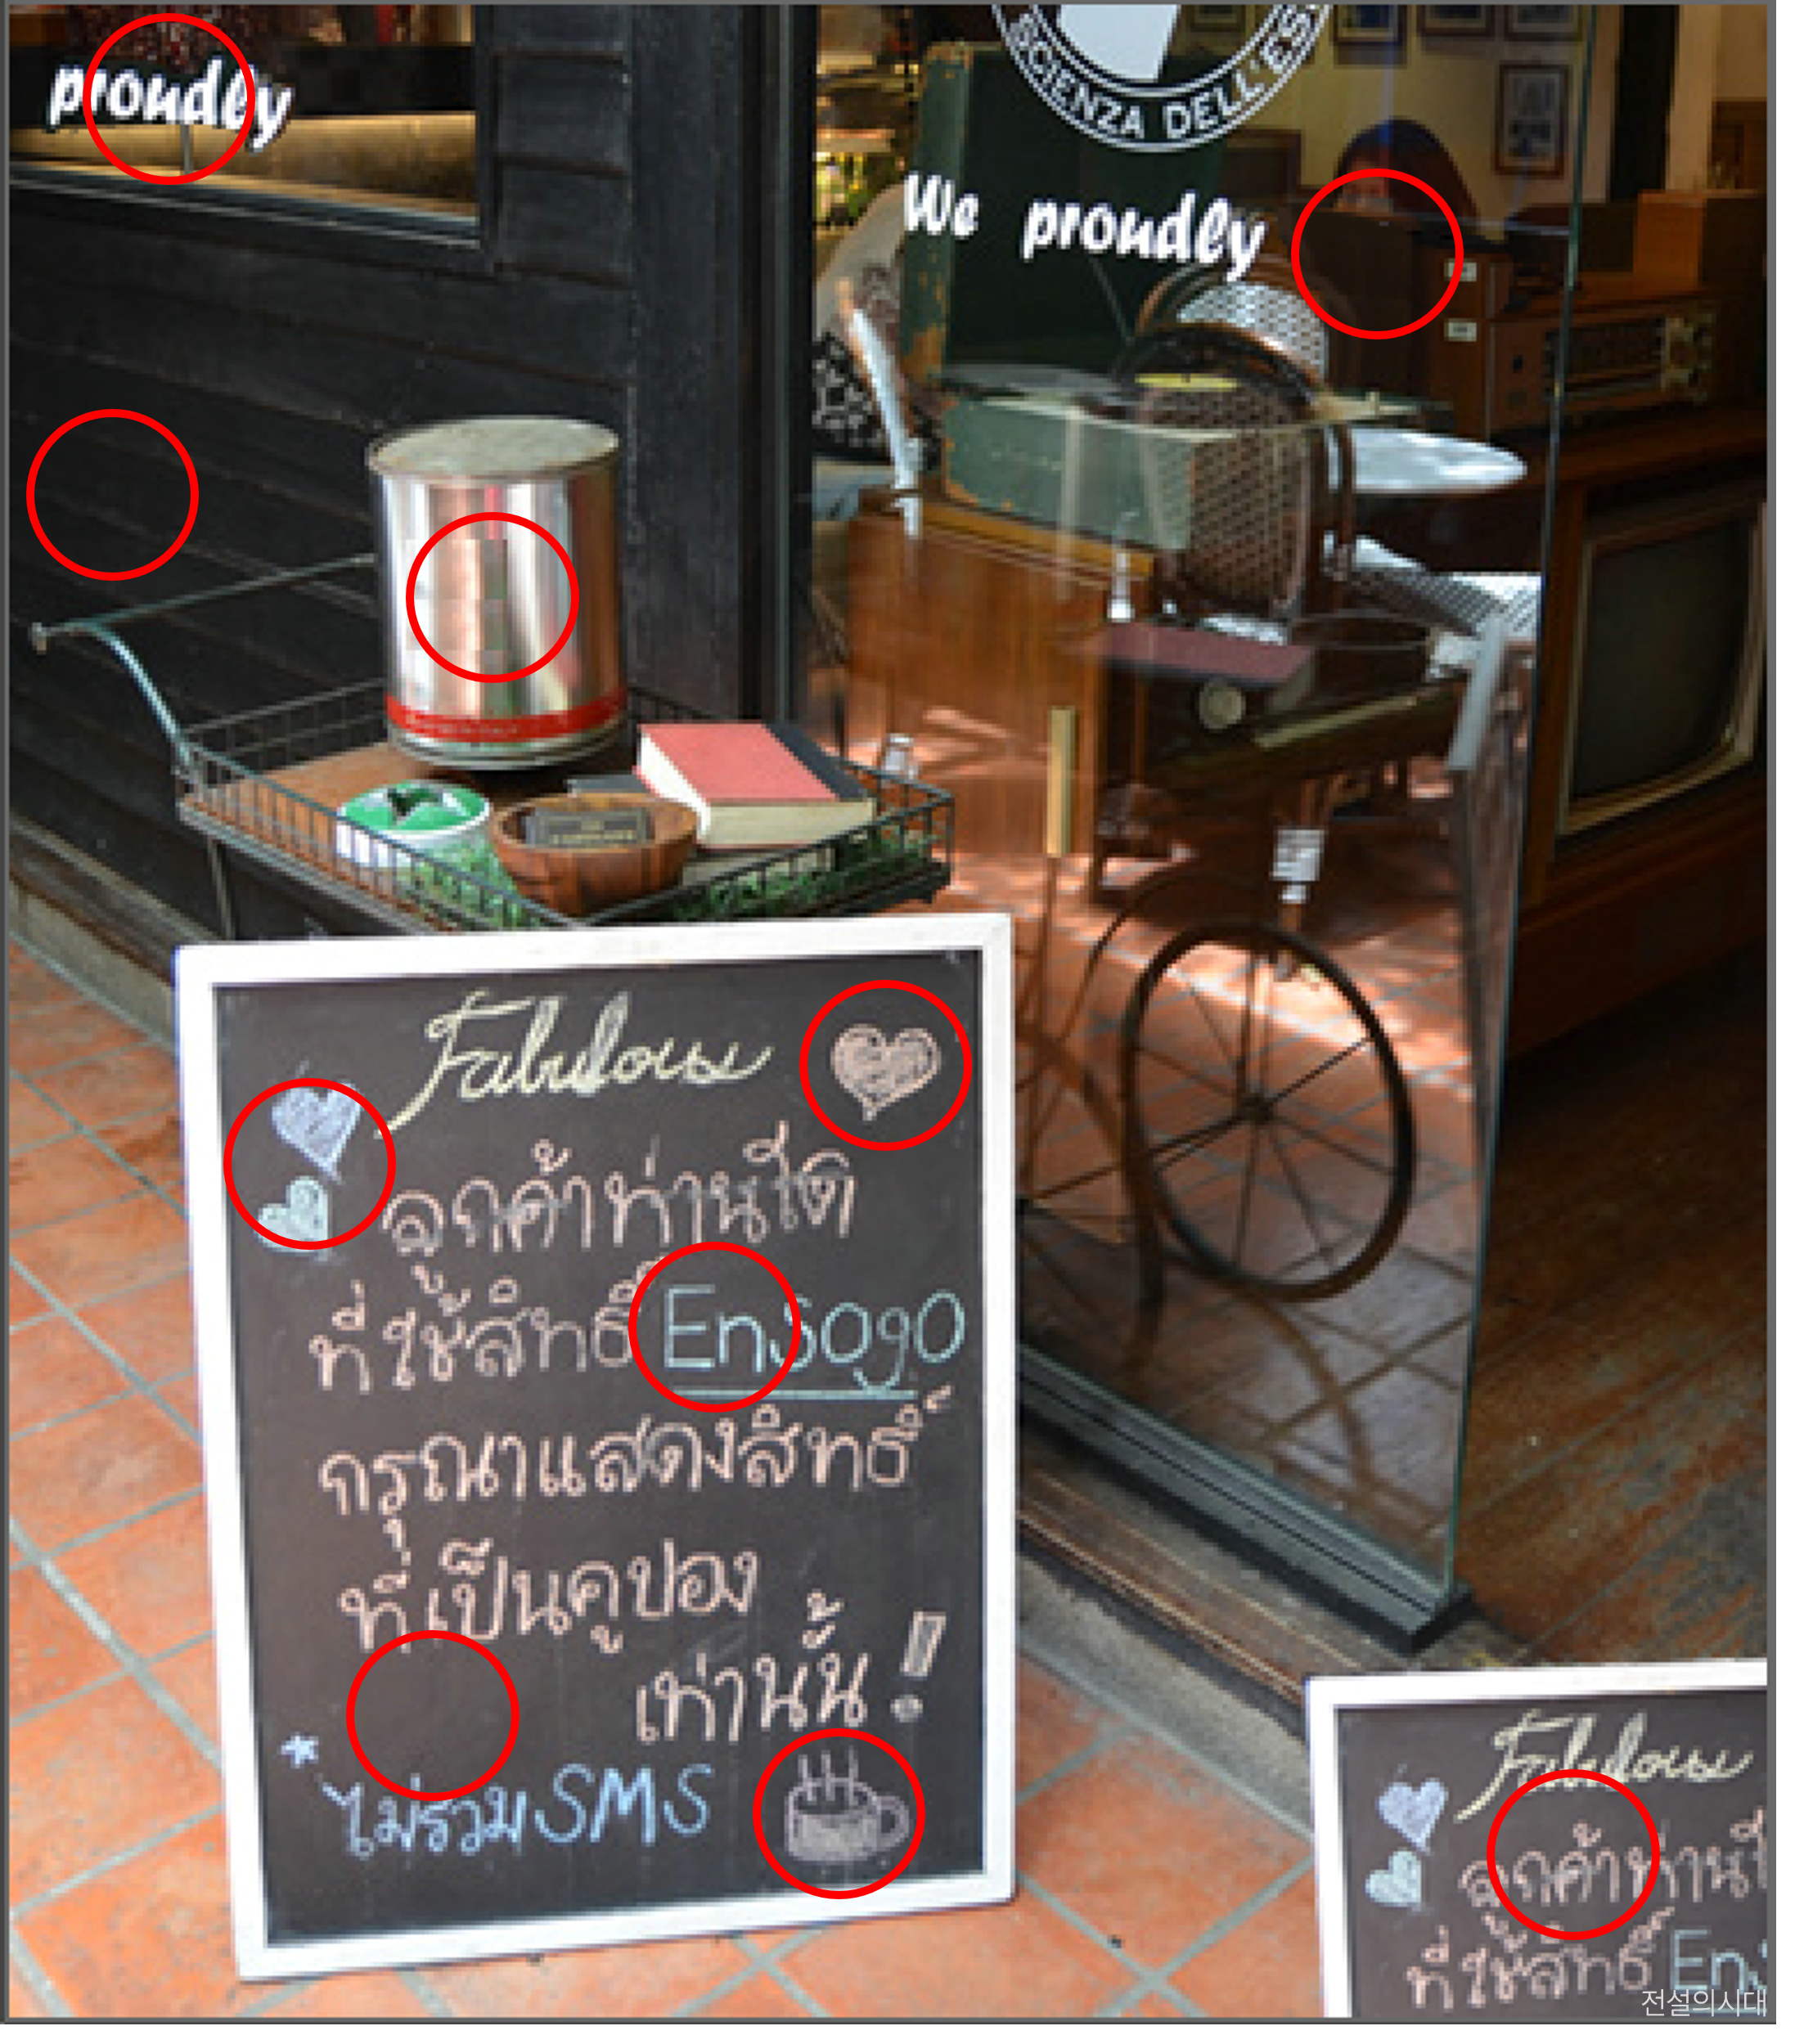 proudly
SCIENZA DELL'ES
We proudly
Fabulous
ลูกค้าท่านใด
ที่ใช้สิทธิ์ Ensogo
กรุณาแสดงสิทธิ์
ที่เป็นคูปอง
เท่านั้น!
*ไม่รวม SMS
Fabulous
ลูกค้าท่านใ
ที่ใช้สิทธิ์ Ens
전설의시대